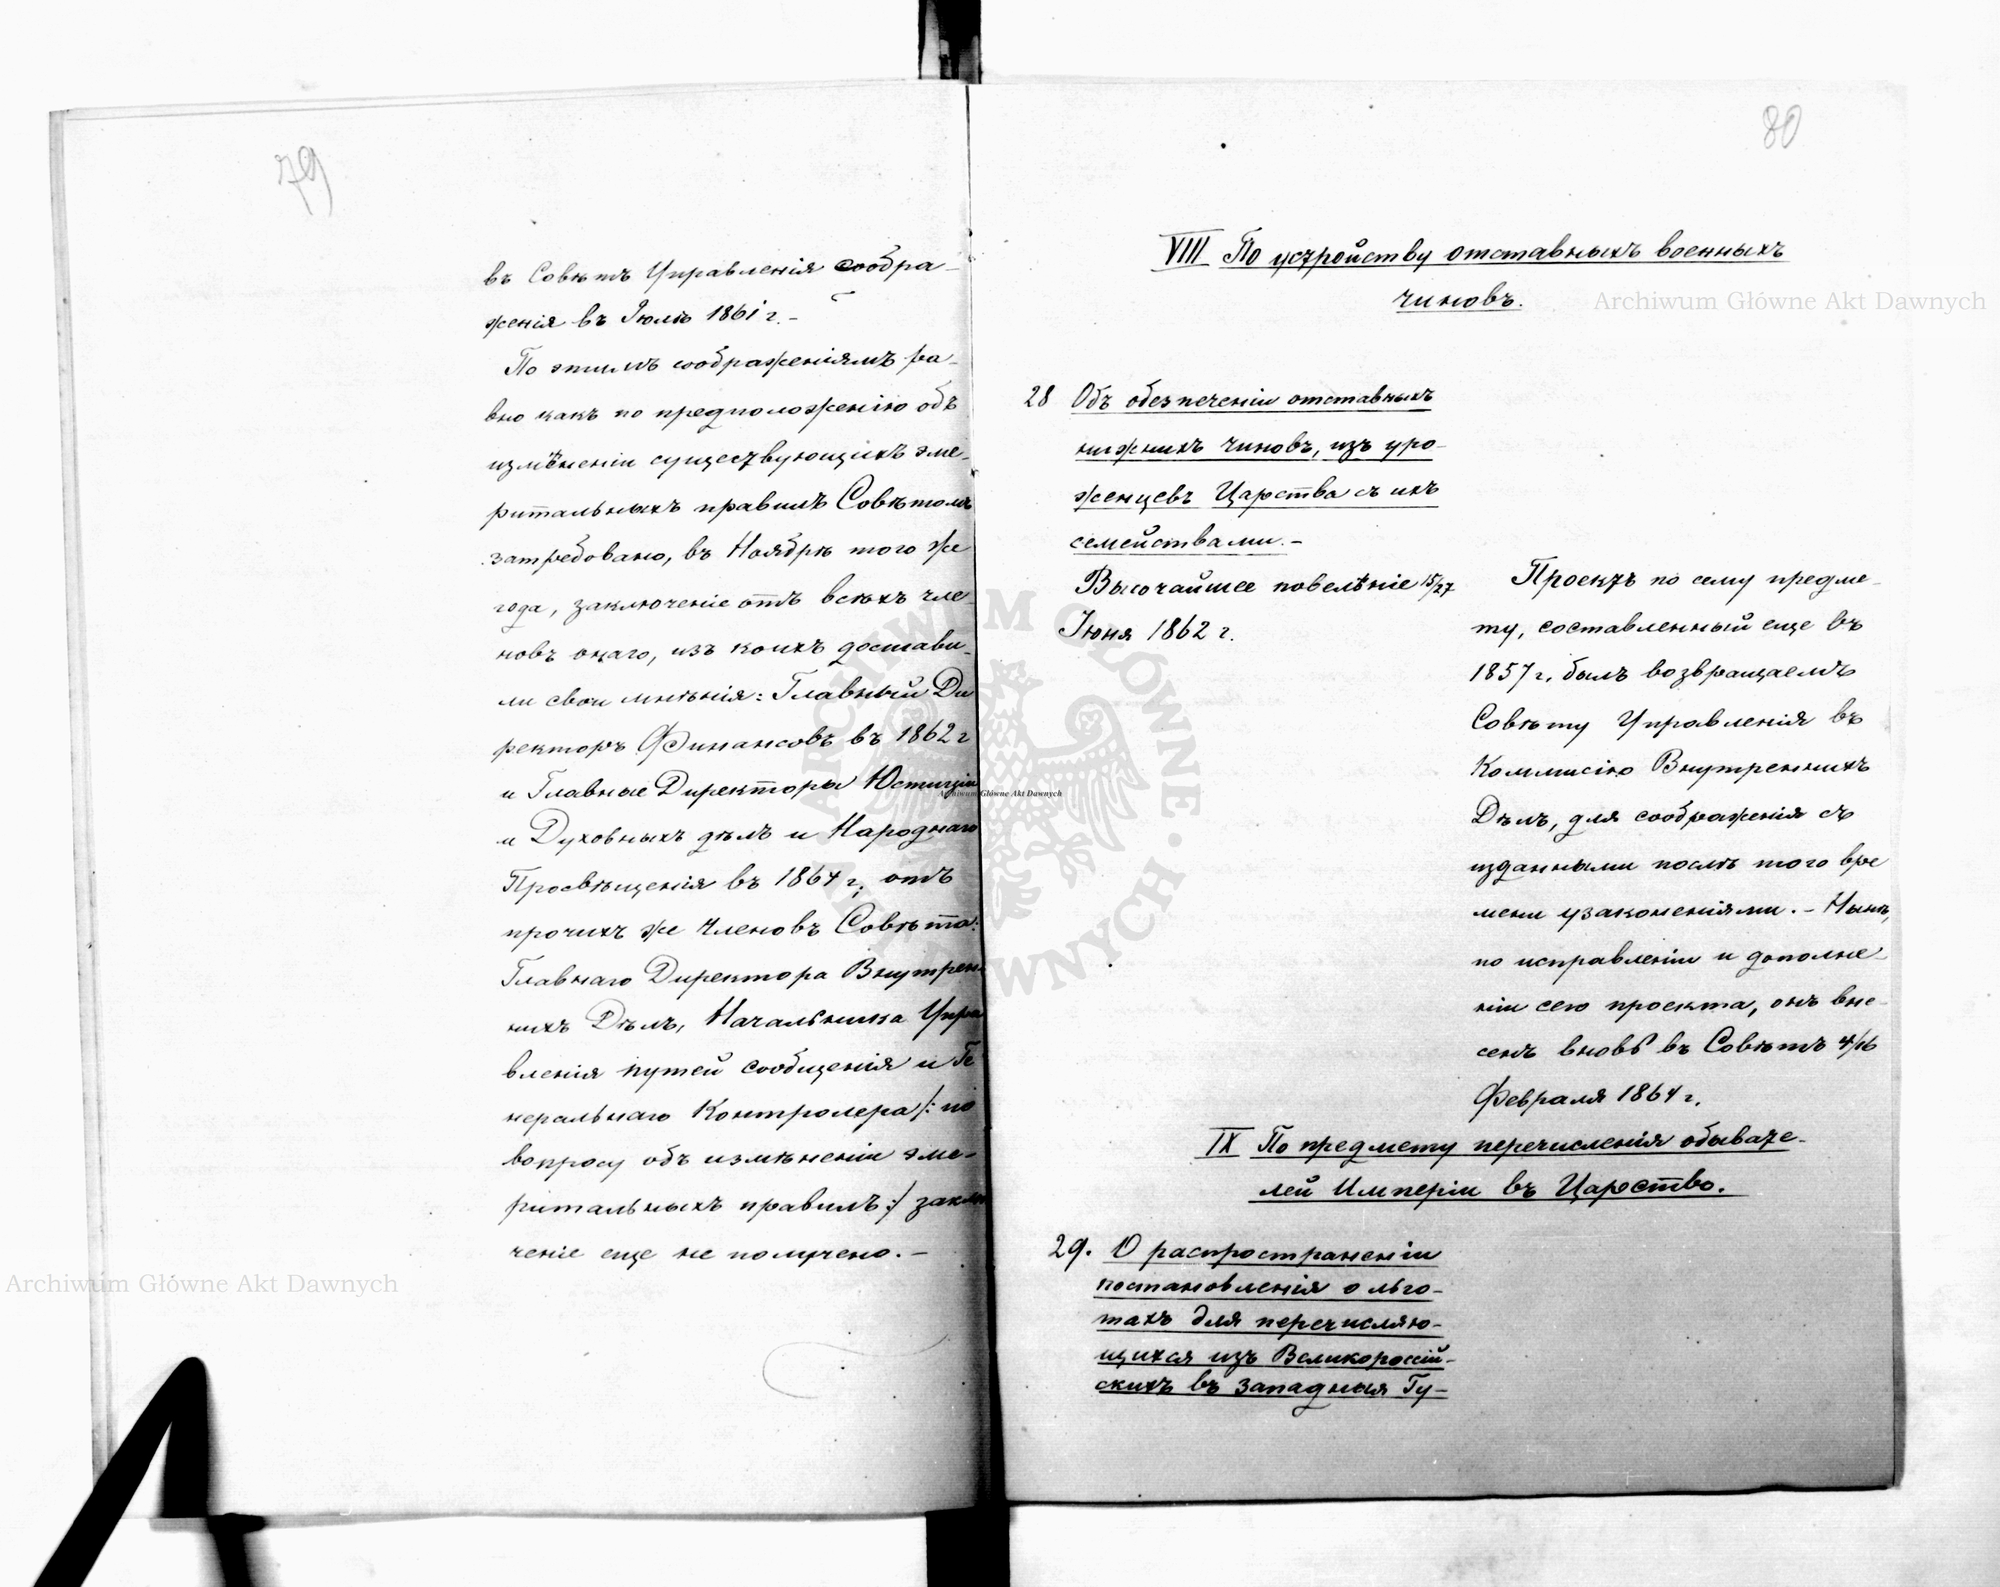 79
въ Совѣтъ Управленія сообра-
женія въ Іюлѣ 1861 г.-
По этимъ соображеніямъ ра-
вно какъ по предположенію объ
измѣненіи существующихъ эме-
ритальныхъ правилъ Совѣтомъ
затребовано, въ Ноябрѣ того же
года, заключеніе отъ всѣхъ чле-
новъ онаго, изъ коихъ достави-
ли свои мнѣнія: Главный Ди
ректоръ Финансовъ въ 1862 г
и Главные Директоры Юстиціи
и Духовныхъ дѣлъ и Народнаго
Просвѣщенія въ 1864 г; отъ
прочихъ же Членовъ Совѣта:
Главнаго Директора Внутрен-
нихъ Дѣлъ, Начальника Упра
вленія путей сообщенія и Ге
неральнаго Контролера /: по
вопросу объ измѣненіи эме-
ритальныхъ правилъ :/ заклю
ченіе еще не получено. -
80
VIII По устройству отставныхъ военныхъ
чиновъ.
28 Объ обезпеченіи отставныхъ
нижнихъ чиновъ, изъ уро-
женцевъ Царства съ ихъ
семействами. -
Высочайшее повелѣніе 15/27
Іюня 1862 г.
Проектъ по сему предме-
ту, составленный еще въ
1857 г. былъ возвращаемъ
Совѣту Управленія въ
Коммисію Внутреннихъ
Дѣлъ, для соображенія съ
изданными послѣ того вре
мени узаконеніями. - Нынѣ,
по исправленіи и дополне-
ніи сего проекта, онъ вне-
сенъ вновь въ Совѣтъ 4/16
Февраля 1864 г.
IX По предмету перечисленія обывате-
лей Имперіи въ Царство.
29. О распространеніи
постановленія о льго-
тахъ для перечисляю-
щихся изъ Великороссій-
скихъ въ Западныя Гу-
Archiwum Główne Akt Dawnych
Archiwum Główne Akt Dawnych
Archiwum Główne Akt Dawnych
ARCHIWUM GŁÓWNE AKT DAWNYCH